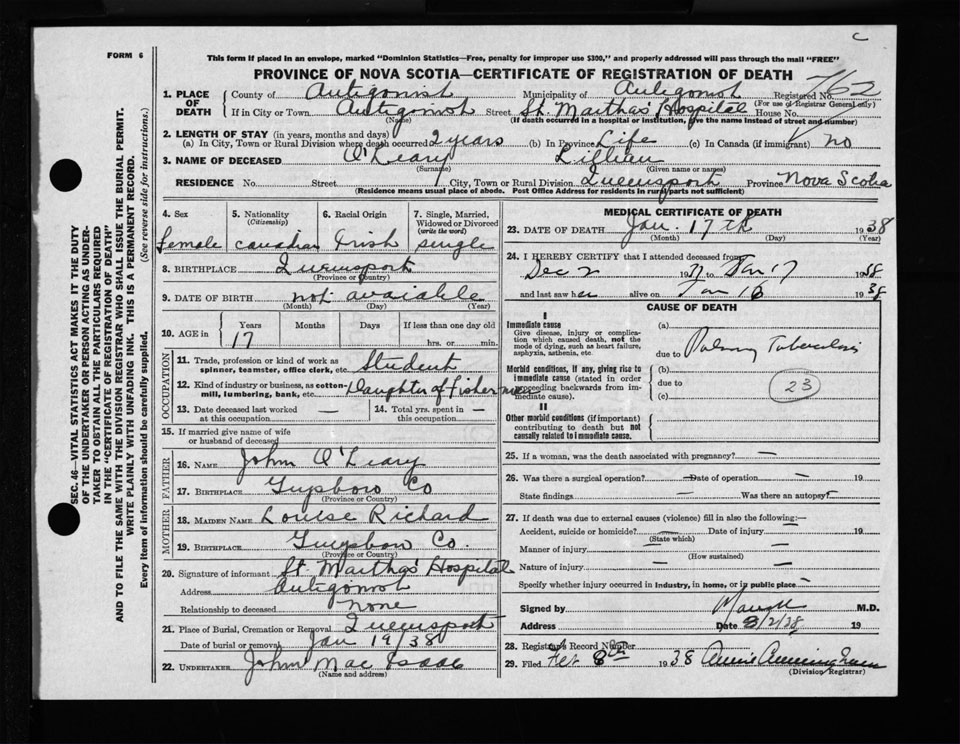 C
FORM 6
This form if placed in an envelope, marked "Dominion Statistics—Free, penalty for improper use $300," and properly addressed will pass through the mail "FREE"
PROVINCE OF NOVA SCOTIA—CERTIFICATE OF REGISTRATION OF DEATH
1. PLACE OF DEATH County of Antigonish Municipality of Antigonish Registered No. 762
(For use of Registrar General only)
If in City or Town Antigonish Street St. Martha's Hospital House No.
(Name) (If death occurred in a hospital or institution, give the name instead of street and number)
2. LENGTH OF STAY (in years, months and days)
(a) In City, Town or Rural Division where death occurred 2 years (b) In Province Life (c) In Canada (if immigrant) no
3. NAME OF DECEASED O'Leary Lillian
(Surname) (Given name or names)
RESIDENCE No. Street City, Town or Rural Division Queensport Province Nova Scotia
(Residence means usual place of abode. Post Office Address for residents in rural parts not sufficient)
4. Sex 5. Nationality (Citizenship) 6. Racial Origin 7. Single, Married, Widowed or Divorced (write the word)
female Canadian Irish single
8. BIRTHPLACE Queensport
(Province or Country)
9. DATE OF BIRTH not avaiable
(Month) (Day) (Year)
10. AGE in Years Months Days If less than one day old
17 hrs. or min.
OCCUPATION
11. Trade, profession or kind of work as spinner, teamster, office clerk, etc. Student
12. Kind of industry or business, as cotton-mill, lumbering, bank, etc. Daughter of Fisherman
13. Date deceased last worked at this occupation — 14. Total yrs. spent in this occupation —
15. If married give name of wife or husband of deceased
FATHER
16. NAME John O'Leary
17. BIRTHPLACE Guysboro Co
(Province or Country)
MOTHER
18. MAIDEN NAME Louise Richard
19. BIRTHPLACE Guysboro Co.
(Province or Country)
20. Signature of informant St. Martha's Hospital
Address Antigonish
Relationship to deceased none
21. Place of Burial, Cremation or Removal Queensport
Date of burial or removal Jan 19/38
22. UNDERTAKER John Mac Isaac
(Name and address)
MEDICAL CERTIFICATE OF DEATH
23. DATE OF DEATH Jan. 17th 1938
(Month) (Day) (Year)
24. I HEREBY CERTIFY that I attended deceased from
Dec 2 1937 to Jan 17 1938
and last saw her alive on Jan 16 1938
CAUSE OF DEATH
I
Immediate cause
Give disease, injury or complication which caused death, not the mode of dying, such as heart failure, asphyxia, asthenia, etc.
(a)
due to Pulmry Tuberculosis
Morbid conditions, if any, giving rise to immediate cause (stated in order proceeding backwards from immediate cause).
(b)
due to
(c)
23
II
Other morbid conditions (if important) contributing to death but not causally related to immediate cause.
25. If a woman, was the death associated with pregnancy? —
26. Was there a surgical operation? — Date of operation — 19
State findings — Was there an autopsy? —
27. If death was due to external causes (violence) fill in also the following:—
Accident, suicide or homicide? — Date of injury — 19
(State which)
Manner of injury — —
(How sustained)
Nature of injury — —
Specify whether injury occurred in industry, in home, or in public place —
Signed by M.D.
Address Date 8/2/38 19
28. Registrar's Record Number
29. Filed Feb 8th 1938 Annie
(Division Registrar)
SEC. 46—VITAL STATISTICS ACT MAKES IT THE DUTY
OF THE UNDERTAKER OR PERSON ACTING AS UNDER-
TAKER TO OBTAIN ALL THE PARTICULARS REQUIRED
IN THE "CERTIFICATE OF REGISTRATION OF DEATH"
AND TO FILE THE SAME WITH THE DIVISION REGISTRAR WHO SHALL ISSUE THE BURIAL PERMIT.
WRITE PLAINLY WITH UNFADING INK. THIS IS A PERMANENT RECORD.
Every item of information should be carefully supplied. (See reverse side for instructions.)